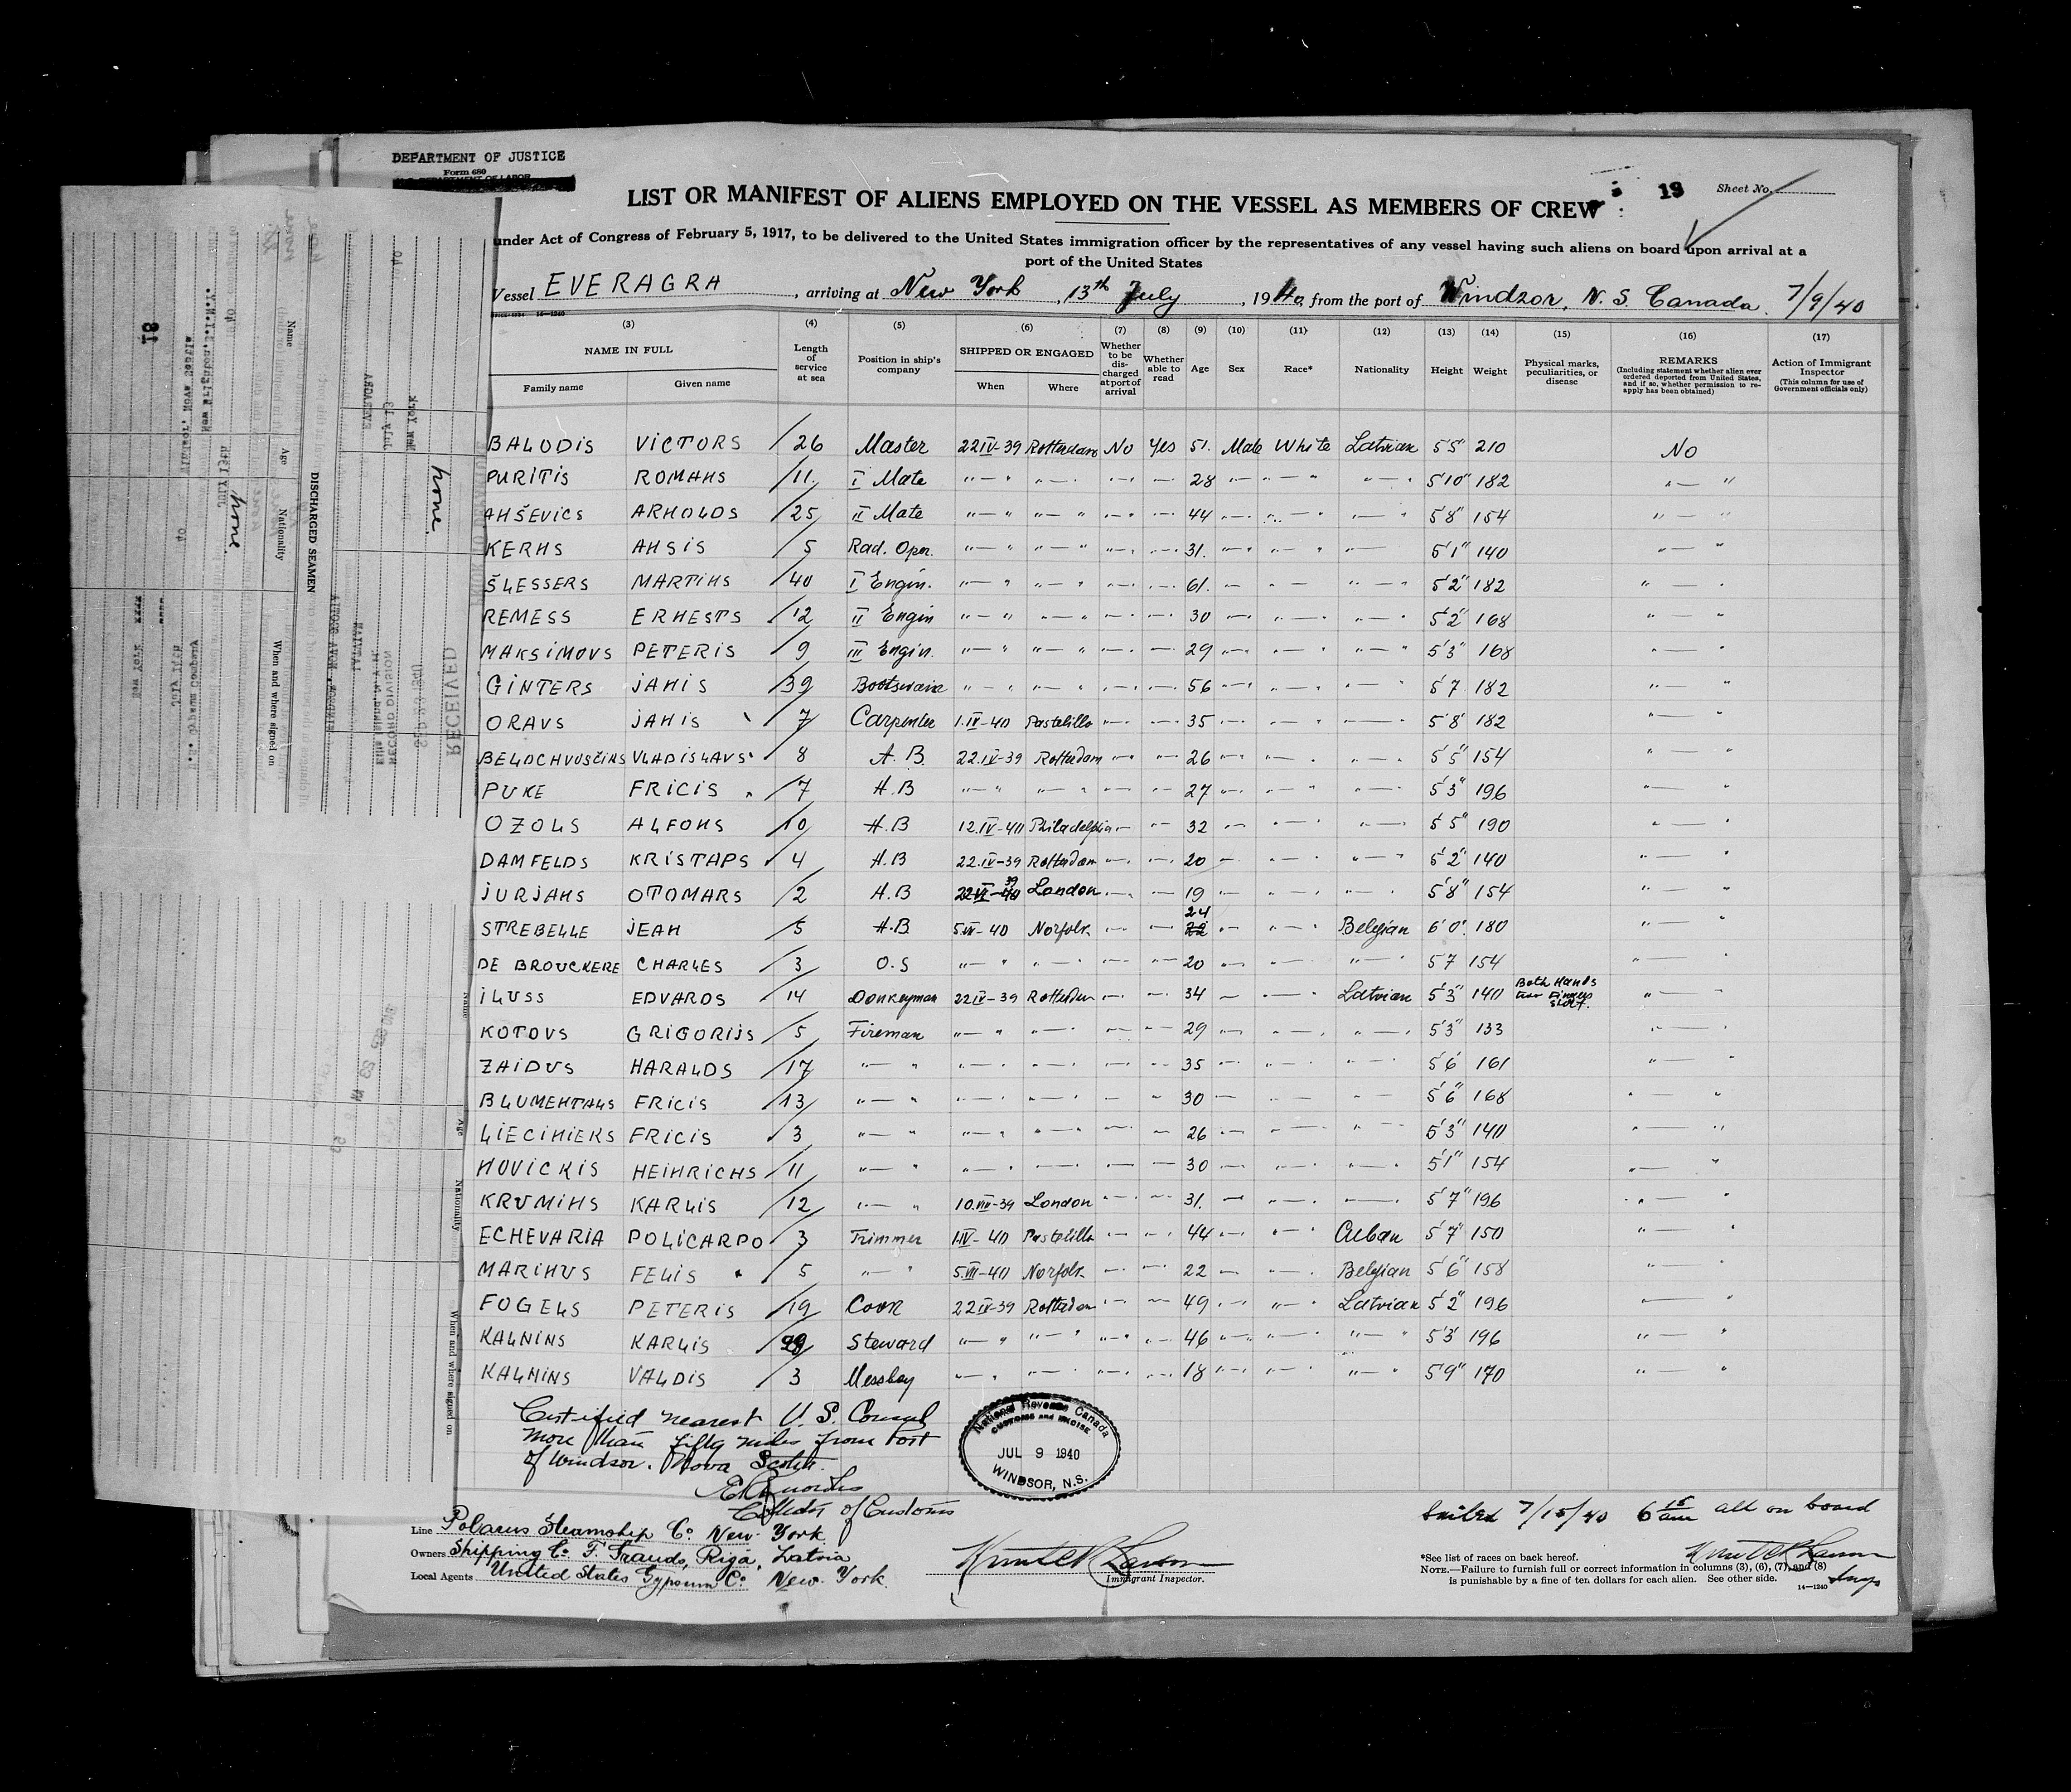 DEPARTMENT OF JUSTICE
Form 680
LIST OR MANIFEST OF ALIENS EMPLOYED ON THE VESSEL AS MEMBERS OF CREW
19 Sheet No.
under Act of Congress of February 5, 1917, to be delivered to the United States immigration officer by the representatives of any vessel having such aliens on board upon arrival at a
port of the United States
Vessel EVERAGRA, arriving at New York, 13th July, 1940, from the port of Windzor, N. S. Canada. 7/9/40
(3) (4) (5) (6) (7) (8) (9) (10) (11) (12) (13) (14) (15) (16) (17)
NAME IN FULL Family name Given name
Length of service at sea
Position in ship's company
SHIPPED OR ENGAGED When Where
Whether to be discharged at port of arrival
Whether able to read
Age
Sex
Race*
Nationality
Height
Weight
Physical marks, peculiarities, or disease
REMARKS (Including statement whether alien ever ordered deported from United States, and if so, whether permission to reapply has been obtained)
Action of Immigrant Inspector (This column for use of Government officials only)
BALODIS VICTORS 26 Master 22 IV-39 Rotterdam No Yes 51. Male White Latvian 5'5" 210 No
PURITIS ROMANS 11. I Mate " — " " — " " — " " — 28 " — " — " " — " 5'10" 182 " — "
ANŠEVICS ARNOLDS 25 II Mate " — " " — " " — " " — 44 " — " — " " — " 5'8" 154 " — "
KERNS ANSIS 5 Rad. Oper. " — " " — " " — " " — 31. " — " — " " — 5'1" 140 " — "
ŠLESSERS MARTINS 40 I Engin. " — " " — " " — " " — 61. " — " — " — " 5'2" 182 " — "
REMESS ERNESTS 12 II Engin " — " " — " " — " " — 30 " — " — " " — " 5'2" 168 " — "
MAKSIMOVS PETERIS 9 III Engin. " — " " — " " — " " — 29 " — " — " " — " 5'3" 168 " — "
GINTERS JANIS 39 Bootswain " — " " — " " — " " — 56 " — " — " " — " 5'7 182 " — "
ORAVS JANIS 7 Carpenter 1.IV-40 Pastelillo " — " — 35 " — " — " " — " 5'8" 182 " — "
BELOCHVOSTINS VLADISLAVS 8 A. B. 22.IV-39 Rotterdam " — " — 26 " — " — " " — " 5'5" 154 " — "
PUKE FRICIS 7 A.B " — " " — " " — " — 27 " — " — " " — " 5'3" 196 " — "
OZOLS ALFONS 10 A.B 12.IV-40 Philadelphia " — " — 32 " — " — " " — " 5'5" 190 " — "
DAMFELDS KRISTAPS 4 A.B 22.IV-39 Rotterdam " — " — 20 " — " — " " — " 5'2" 140 " — "
JURJANS OTOMARS 2 A.B 22 VI-39 London " — " — 19 " — " — " " — " 5'8" 154 " — "
STREBELLE JEAN 5 A.B. 5.VII-40 Norfolk " — " — 24 22 " — " — " Belgian 6'0". 180 " — "
DE BROUCKERE CHARLES 3 O.S " — " " — " " — " — 20 " — " — " " — " 5'7 154 " — "
ILUSS EDVARDS 14 Donkeyman 22 IV-39 Rotterdam " — " — 34 " — " — " Latvian 5'3" 140 Both Hands two Fingers short. " — "
KOTOVS GRIGORIJS 5 Fireman " — " " — " " — " — 29 " — " — " " — " 5'3" 133 " — "
ZAIDUS HARALDS 17 " — " " — " " — " " — " — 35 " — " — " " — " 5'6' 161 " — "
BLUMENTALS FRICIS 13 " — " " — " " — " — " 30 " — " — " — 5'6" 168 " — "
LIECINIEKS FRICIS 3 " — " " — " " — " " — " — 26 " — " — " " — " 5'3" 140 " — "
NOVICKIS HEINRICHS 11 " — " " — " " — " " — " — 30 " — " — " " — " 5'1" 154 " — "
KRUMINS KARLIS 12 " — " 10.VIII-39 London " — " — 31. " — " — " " — " 5'7" 196 " — "
ECHEVARIA POLICARPO 3 Trimmer 1.IV-40 Pastelillo " — " — 44 " — " — " Cuban 5'7" 150 " — "
MARINUS FELIS 5 " — " 5.VII-40 Norfolk " — " — 22 " — " — " Belgian 5'6" 158 " — "
FOGELS PETERIS 19 Cook 22 IV-39 Rotterdam " — " — 49 " — " — " Latvian 5'2" 196 " — "
KALNINS KARLIS Steward " — " " — " " — " " — 46 " — " — " " — " 5'3' 196 " — "
KALNINS VALDIS 3 Messboy " — " " — " " — " " — 18 " — " — " " — " 5'9" 170 " — "
Certified nearest U. S. Consul
more than fifty miles from Port
of Windsor. Nova Scotia.
Collector of Customs
National Revenue Canada
CUSTOMS and EXCISE
JUL 9 1940
WINDSOR, N.S.
Line Polarus Steamship Co. New York
Owners Shipping Co F. Grauds, Riga, Latvia
Local Agents United States Gypsum Co. New York.
Immigrant Inspector.
Sailed 7/15/40 6 15 am all on board
*See list of races on back hereof.
NOTE.—Failure to furnish full or correct information in columns (3), (6), (7), and (8)
is punishable by a fine of ten dollars for each alien. See other side.
14—1240
Insp
18
Name
Age
Nationality
When and where signed on
DISCHARGED SEAMEN
none
none.
EVERAGRA
July 13
New York
RECEIVED
RECORD DIVISION
Name
Age
Nationality
When and where signed on